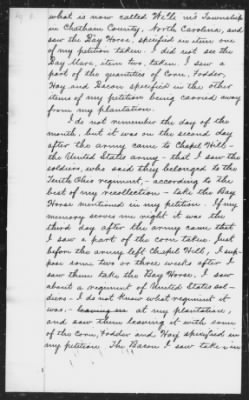 what is now called Wi[lli]'ms Township
in Chatham County, North Carolina, and
saw the Bay Horse, specified in item one
of my petition taken. I did not see the
Bay Mare, item two, taken. I saw a
part of the quantities of Corn, Fodder,
Hay and Bacon specified in the other
items of my petition being carried away
from my plantation.
I do not remember the day of the
month, but it was on the second day
after the army came to Chapel Hill -
the United States army - that I saw the
soldiers, who said they belonged to the
Tenth Ohio regiment, - according to the
best of my recollection - take the Bay
Horse mentioned in my petition. If my
memory serves me right it was the
third day after the army came that
I saw a part of the corn taken. Just
before the army left Chapel Hill, I sup-
pose some two or three weeks after I
saw them take the Bay Horse. I saw
about a regiment of United States sol-
diers - I do not know what regiment it
was, - leaving at my plantation,
and saw them leaving it with some
of the Corn, Fodder and Hay specified in
my petition. The Bacon I saw taken in